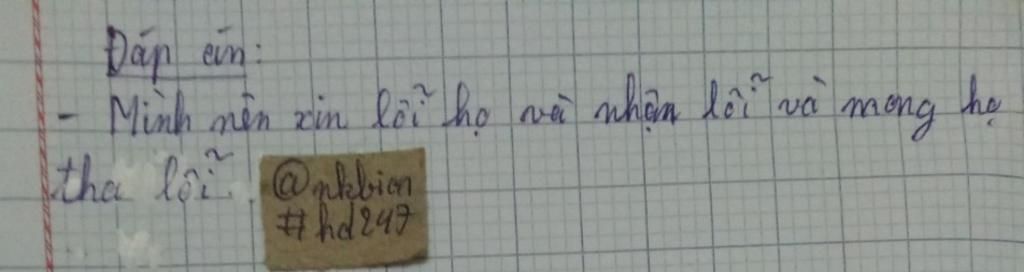 Đáp án:
- Mình nên xin lỗi họ và nhận lỗi và mong họ
tha lỗi.
@nkbion
#hd247